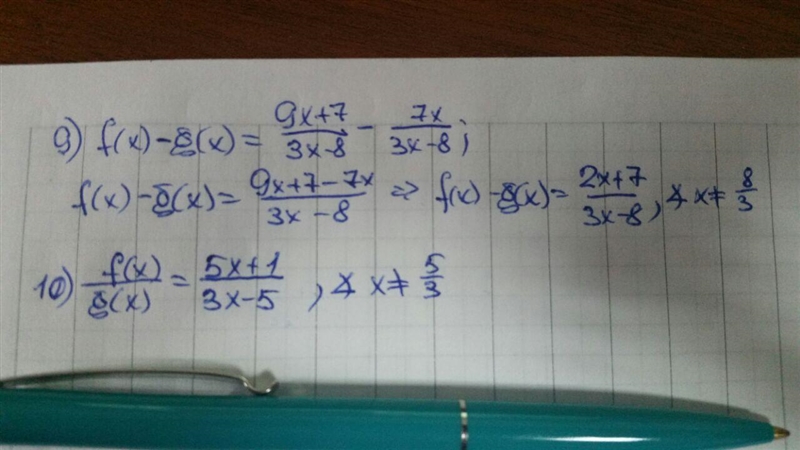 9) f(x)-g(x) = \frac{9x+7}{3x-8} - \frac{7x}{3x-8};
f(x)-g(x) = \frac{9x+7-7x}{3x-8} => f(x)-g(x) = \frac{2x+7}{3x-8}, x≠ \frac{8}{3}
10) \frac{f(x)}{g(x)} = \frac{5x+1}{3x-5}, x≠ \frac{5}{3}